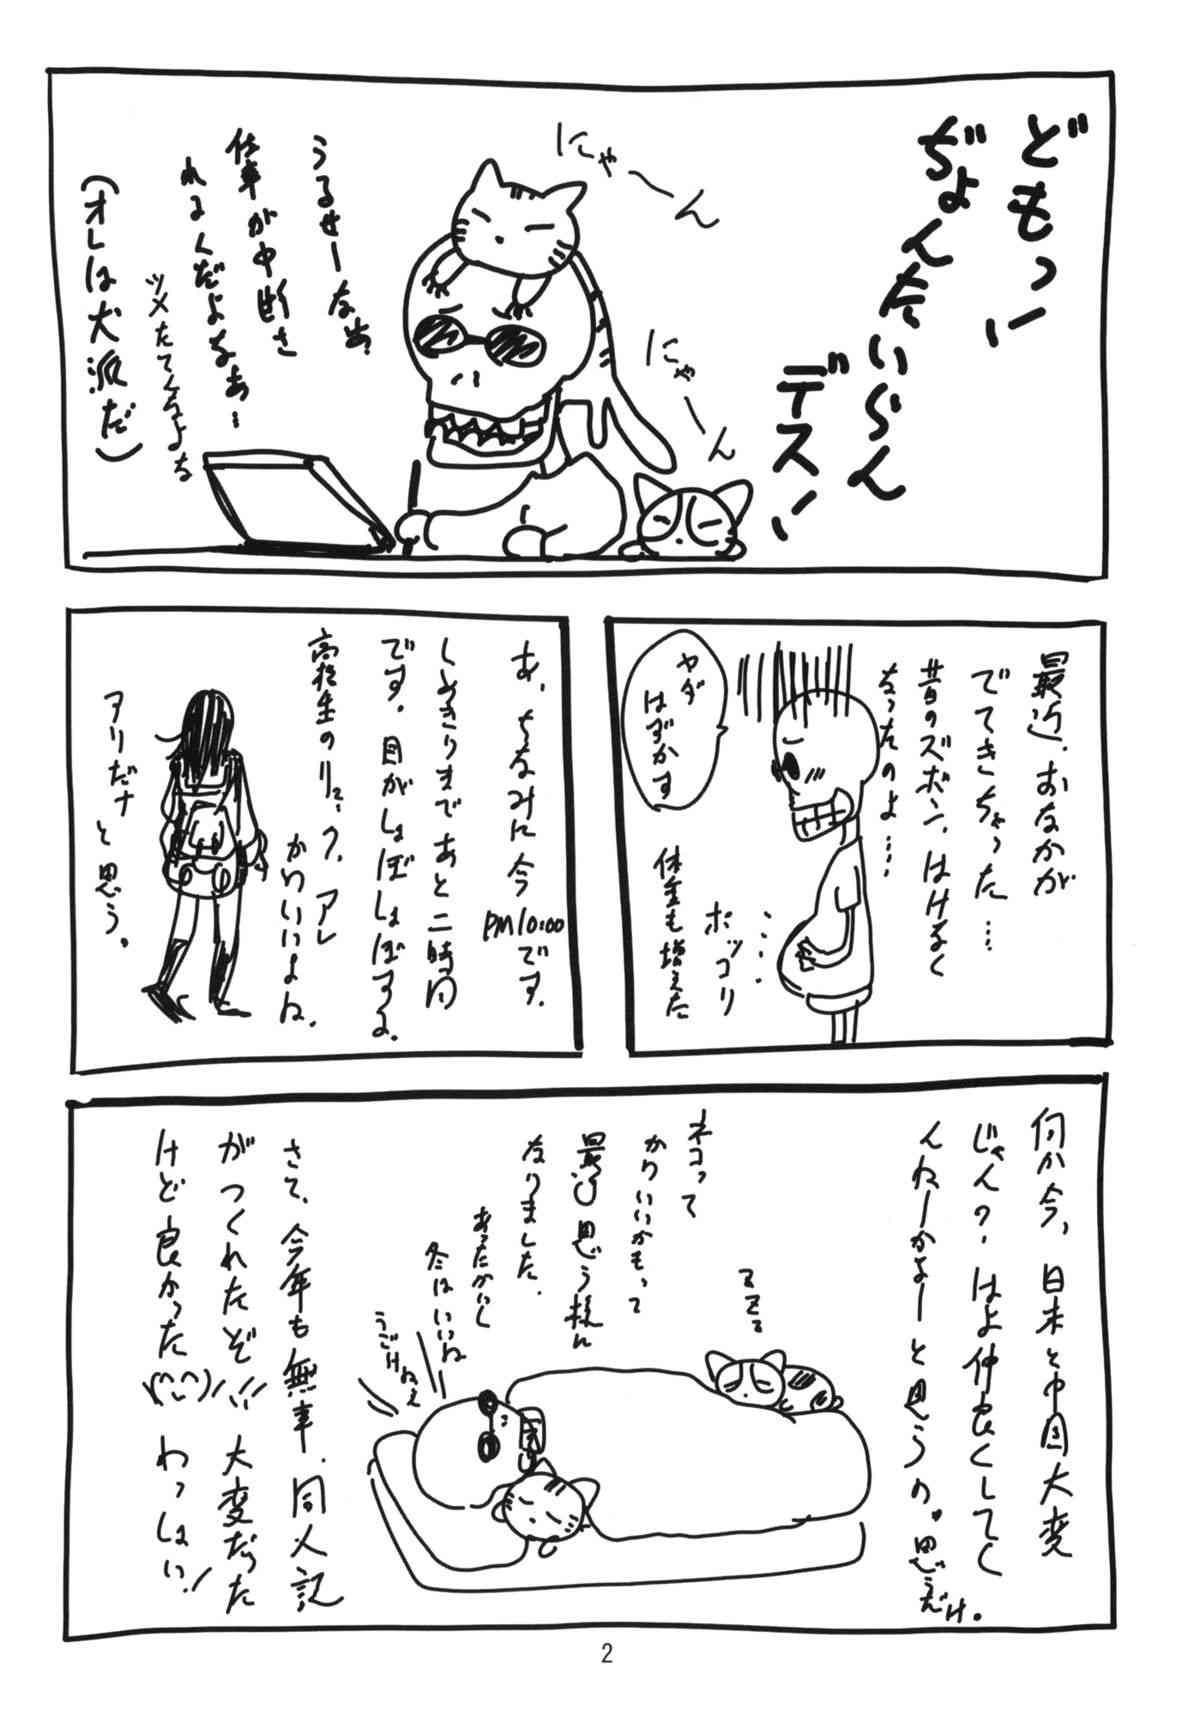 どもっ!
ぢょんたいらん
デス!
にゃーん
にゃーん
うるせーなぁ?
仕事が中断さ
れるんだよなぁ…
ツメたてんなよな
(オレは犬派だ)
最近、おなかが
でてきちゃった…
昔のズボン、はけなく
なったのよ…
ヤダ
はずかす
ポッコリ
体重も増えた
あ、ちなみに今
PM10:00です。
しめきりまであと二時間
です。目がしょぼしょぼするよ。
高校生のリュック、アレ
かわいいよね。
アリだナ
と思う。
何か今、日本と中国大変
じゃん?はよ仲良くしてく
んねーかなーと思うの。思うだけ。
ネコって
かわいいかもって
最近思う様に
なりました。
あったかいし
冬はいいね
うごけねぇ
zzzz
さて、今年も無事、同人記
がつくれたぞ!!大変だった
けど良かった\(^-^)/わっしょい!
2